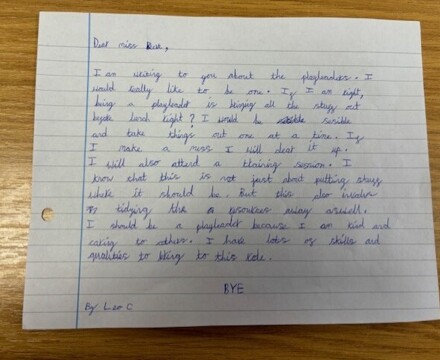 Dear miss
I am writing to you about the playleaders. I
would really like to be one. If I am right,
being a playleader is bringing all the stuff out
before lunch right? I would be sensible
and take things out one at a time. If
I make a mess I will clear it up.
I will also attend a training session. I
know that this is not just about putting stuff
where it should be. But this also involves
tidying the resources away aswell.
I should be a playleader because I am kind and
caring to others. I have lots of skills and
qualities to bring to this role.
BYE
By Leo C